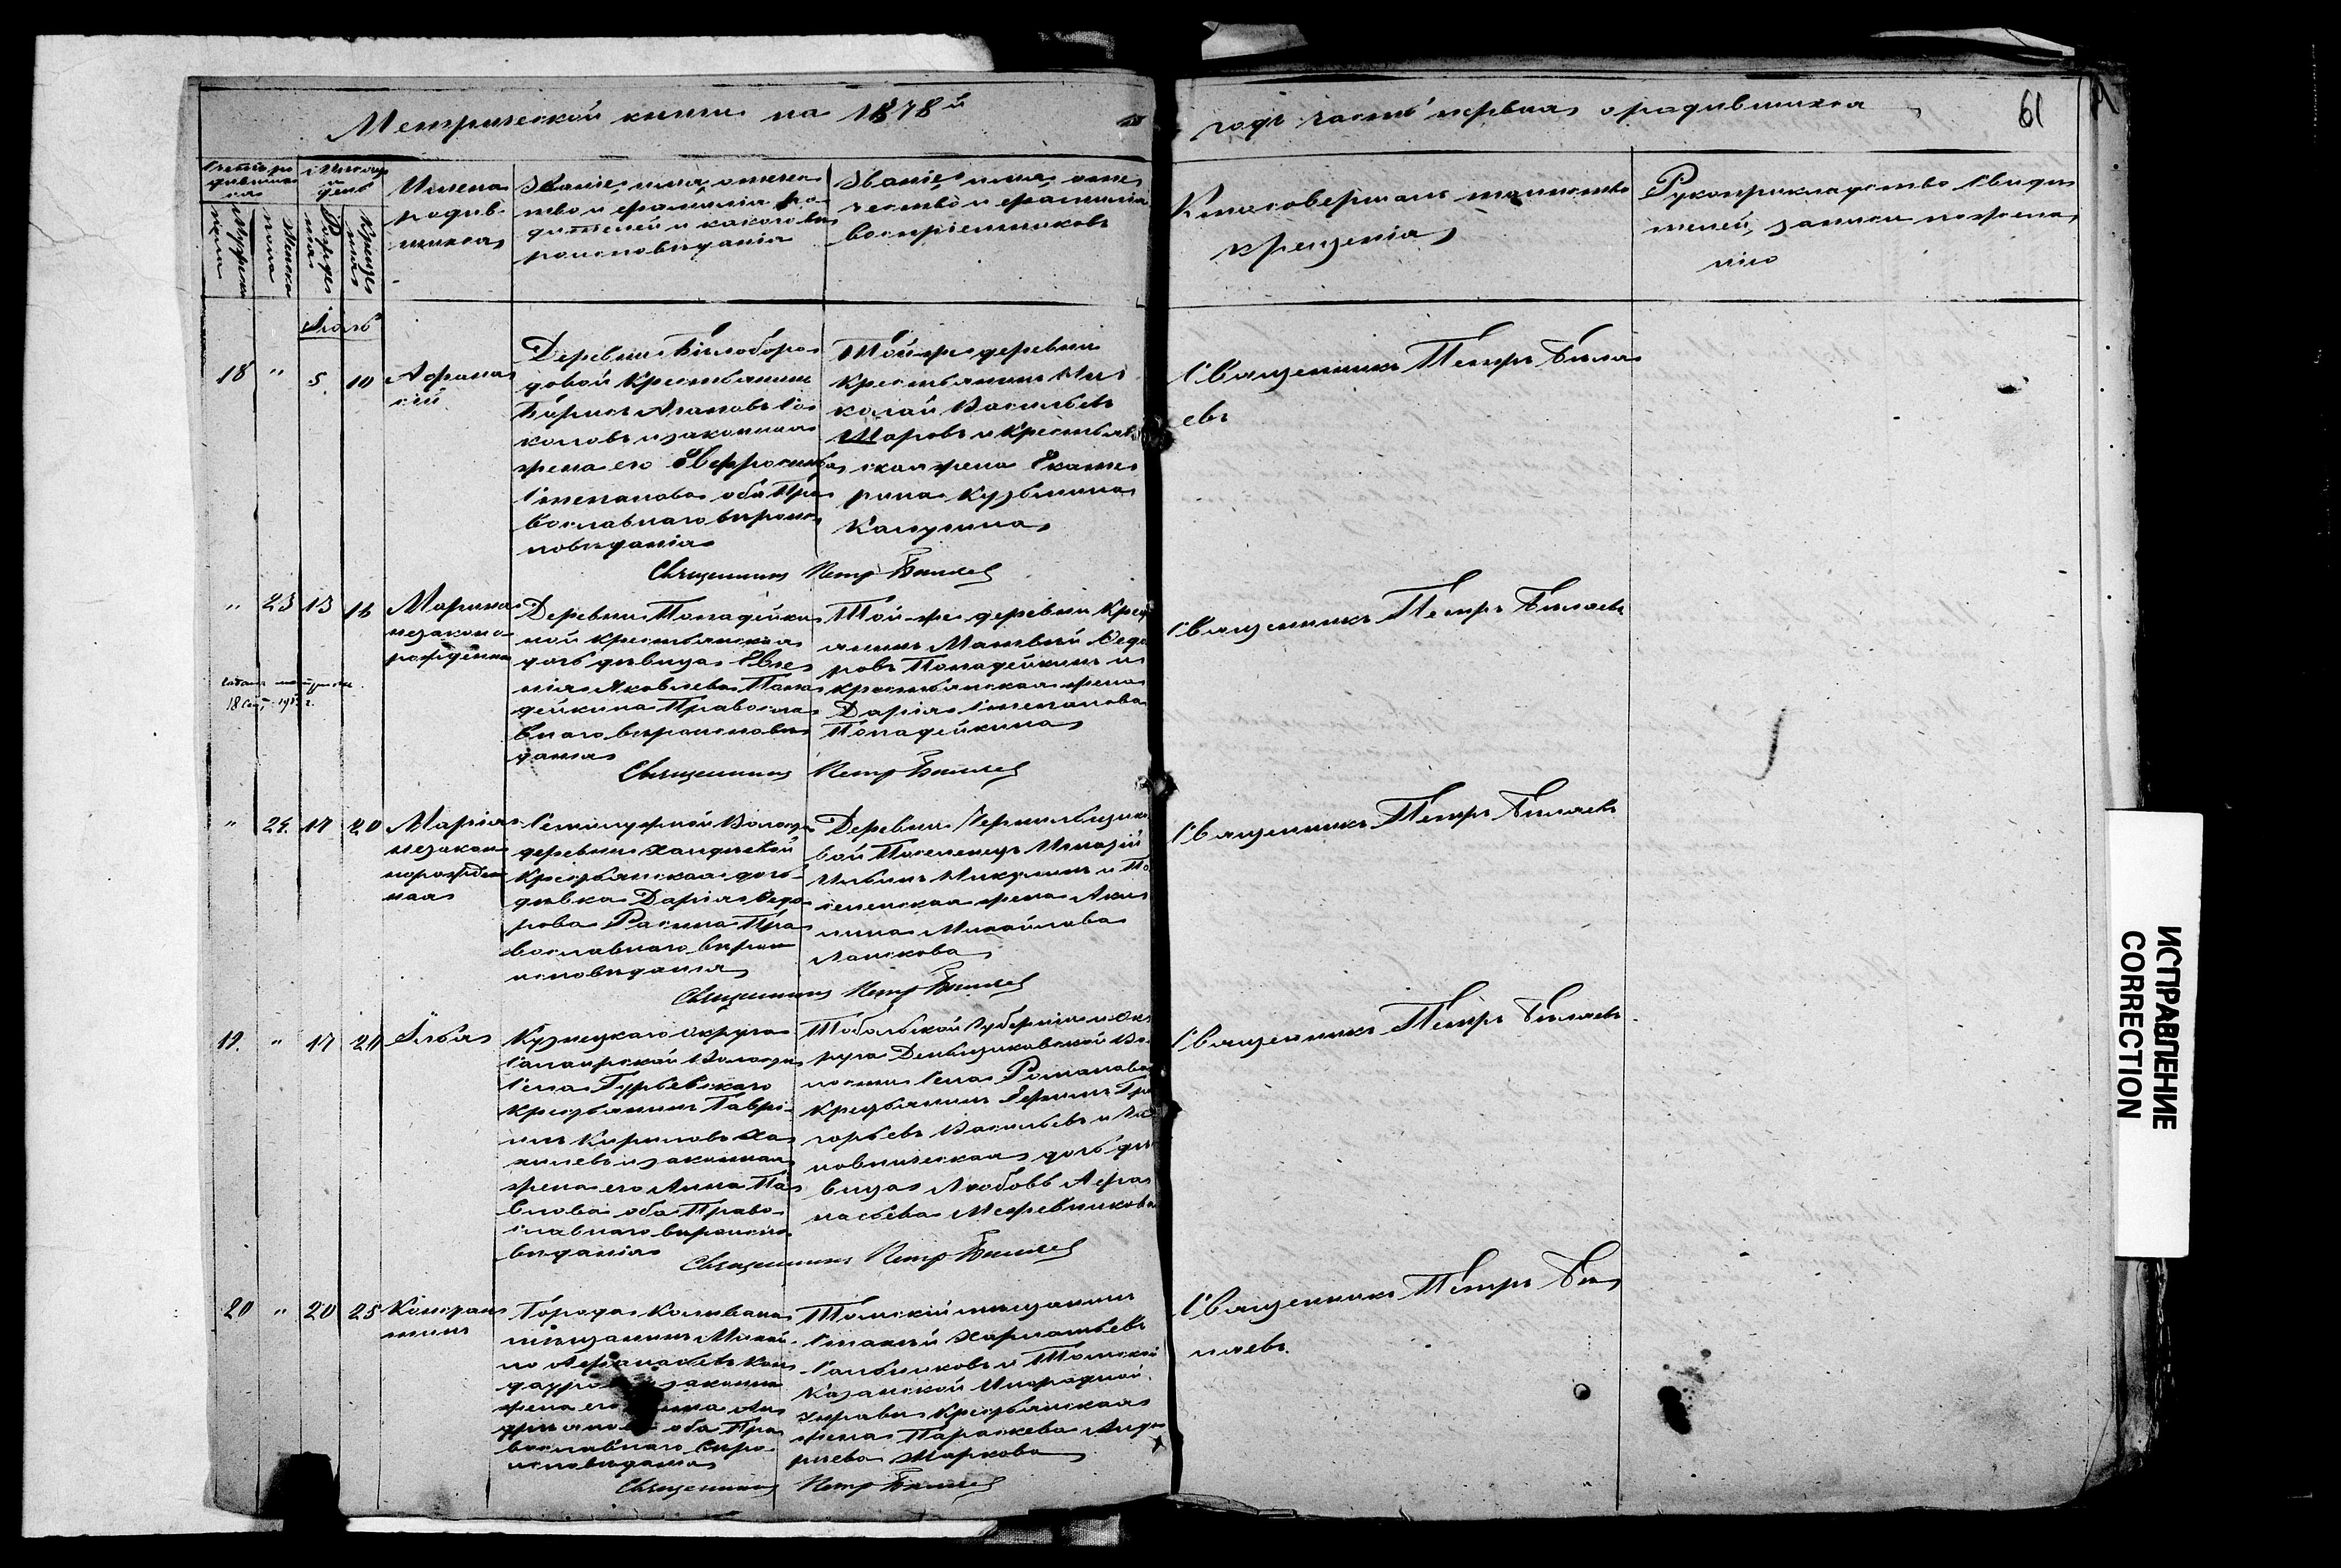 Метрической книги на 1878й
годъ часть первая о родившихся
61
Счетъ родившихся
Мѣсяцъ и день
Мужеска пола
Женска пола
Рожденія
Крещенія
Имена
родив
шихся
Званіе, имя, отече
ство и фамилія ро
дителей и какого вѣ
роисповѣданія
Званіе, имя, оте
чество и фамилія
воспріемниковъ
Кто совершалъ таинство
крещенія
Рукоприкладство свидѣ
телей записи по жела
нію
Іюль
18 " 5. 10
Афана
сій
Деревни Бѣлоборо
довой Крестьянинъ
Борисъ Агаповъ Со
коловъ и законная
жена его Евфросинья
Степанова оба Пра
вославнаго вѣроис
повѣданія
Той-же деревни
Крестьянинъ Ни
колай Васильевъ
Шаровъ и Крестьян
ская жена Екате
рина Кузьмина
Калугина
Священникъ Петръ Бѣляевъ
Священникъ Петръ Бѣля
евъ
" 23 13 16
Марина
незаконо
рожденна
18 Сен. г.
Деревни Попадейки
ной Крестьянская
дочь дѣвица Евге
нія Яковлева Попа
дейкина Правосла
внаго вѣроисповѣ
данія
Той-же деревни Крест
янинъ Матвѣй Федо
ровъ Попадейкинъ и
крестьянская жена
Дарія Степанова
Попадейкина
Священникъ Петръ Бѣляевъ
Священникъ Петръ Бѣляевъ
" 24. 17 20
Марія
незакон
норожден
ная
Семилужной Волости
деревни Халдѣевой
Крестьянская дочь
дѣвка Дарія Федо
рова Расина Пра
вославнаго вѣрои
исповѣданія
Деревни
вой Поселенецъ
Никулинъ и По
селенская жена Аку
лина Михайлова
Священникъ Петръ Бѣляевъ
Священникъ Петръ Бѣляевъ
19. " 17 20
Илья
Кузнецкаго Округа
Салаирской Волости
Села Гурьевскаго
Крестьянинъ Гаврі
илъ Кириловъ Ха
и законная
жена его Анна Па
влова оба Право
славнаго вѣроиспо
вѣданія
Тобольской Губерніи и Ок
руга Волости
Села Романова
Крестьянинъ Ефимъ Гри
горьевъ Васильевъ и Чи
новническая дочь дѣ
вица Любовь Афа
насьева Межевникова
Священникъ Петръ Бѣляевъ
Священникъ Петръ Бѣляевъ.
20 " 20 25
Констан
тинъ
Города Колывана
мѣщанинъ Михай
ло Афанасьевъ
законная
жена его Ан
оба Пра
вославнаго вѣро
исповѣданія
Томскій мѣщанинъ
Харлампьевъ
Сальниковъ и Томской
Казанской Инородной
управы Крестьянская
жена Параскева Андр
Маркова
Священникъ Петръ Бѣляевъ
Священникъ Петръ Бѣ
ляевъ.
ИСПРАВЛЕНИЕ
CORRECTION